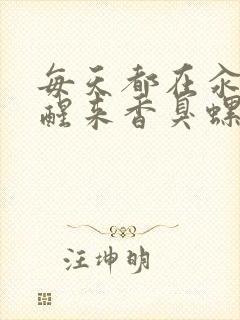 每天都在汆
醒来香臭螺
汪坤明